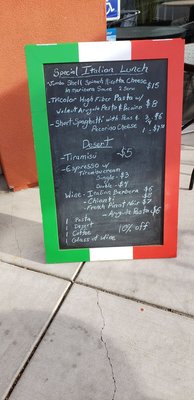 Special Italian Lunch
-Jumbo Shell Spinach Ricotta Cheese $15
in marinara Sauce 2
-Tricolor High Fiber Pasta w/
Walnut Arugula Pesto & $8
-Short Spaghetti with Peas & $6
Pecorino Cheese
Desert
-Tiramisu -$5
-Espresso w/
Tiramisu cream
Single - $3
Double - $4
Wine - Italian Barbera $6
-Chianti $5
-French Pinot Noir $7
-Arugula Pasta - $6
1 Pasta
1 Desert
1 Coffee 10% off
1 Glass of Wine